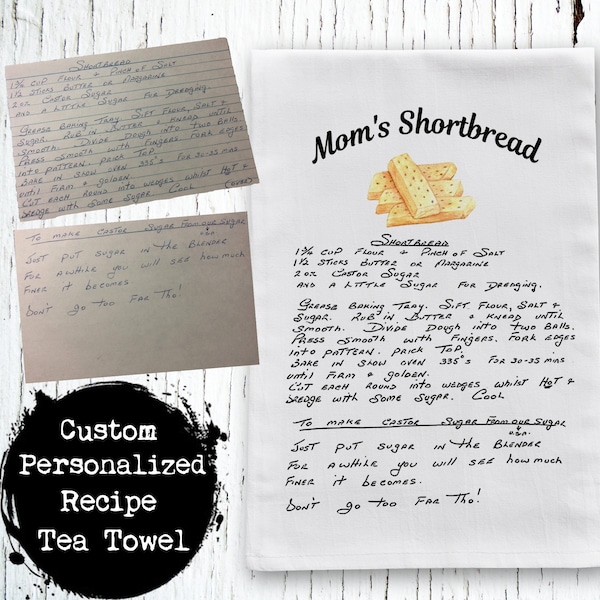 SHORTBREAD
1¾ CUP FLOUR + PINCH OF SALT
1½ STICKS BUTTER OR MARGARINE
2 OZ CASTOR SUGAR
AND A LITTLE SUGAR FOR DREDGING.
GREASE BAKING TRAY. SIFT FLOUR, SALT &
SUGAR. RUB IN BUTTER & KNEAD UNTIL
SMOOTH. DIVIDE DOUGH INTO TWO BALLS.
PRESS SMOOTH WITH FINGERS FORK EDGES
INTO PATTERN. PRICK TOP.
BAKE IN SLOW OVEN 335°S FOR 30-35 MINS
UNTIL FIRM & GOLDEN.
CUT EACH ROUND INTO WEDGES WHILST HOT &
DREDGE WITH SOME SUGAR. COOL (OVER)
TO MAKE CASTOR SUGAR FROM OUR SUGAR
U.S.A.
JUST PUT SUGAR IN THE BLENDER
FOR AWHILE YOU WILL SEE HOW MUCH
FINER IT BECOMES
DON'T GO TOO FAR THO!
Mom's Shortbread
SHORTBREAD
1¾ CUP FLOUR + PINCH OF SALT
1½ STICKS BUTTER OR MARGARINE
2 OZ CASTOR SUGAR
AND A LITTLE SUGAR FOR DREDGING.
GREASE BAKING TRAY. SIFT FLOUR, SALT &
SUGAR. RUB IN BUTTER & KNEAD UNTIL
SMOOTH. DIVIDE DOUGH INTO TWO BALLS.
PRESS SMOOTH WITH FINGERS. FORK EDGES
INTO PATTERN. PRICK TOP.
BAKE IN SLOW OVEN 335°S FOR 30-35 MINS
UNTIL FIRM & GOLDEN.
CUT EACH ROUND INTO WEDGES WHILST HOT &
DREDGE WITH SOME SUGAR. COOL
TO MAKE CASTOR SUGAR FROM OUR SUGAR
U.S.A.
JUST PUT SUGAR IN THE BLENDER
FOR AWHILE YOU WILL SEE HOW MUCH
FINER IT BECOMES.
DON'T GO TOO FAR THO!
Custom
Personalized
Recipe
Tea Towel